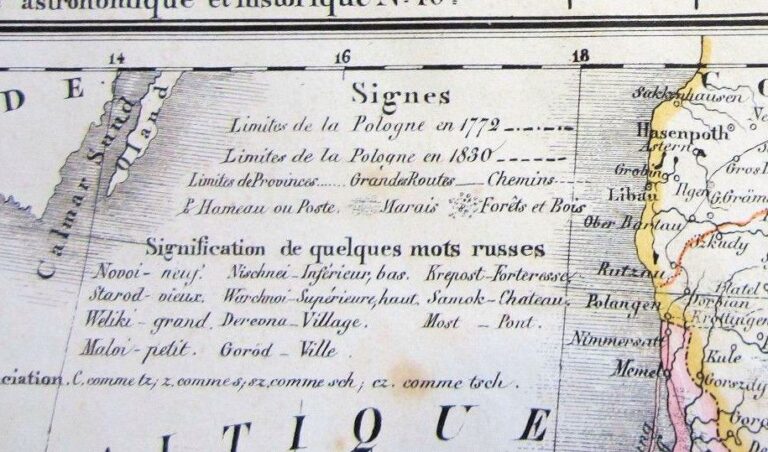 astronomique et historique No. 40.
14 16 18
D E
Calmar Sund
Oland
Signes
Limites de la Pologne en 1772
Limites de la Pologne en 1830
Limites de Provinces ...... Grandes Routes ___ Chemins ----
P. Hameau ou Poste. Marais Forêts et Bois
Signification de quelques mots russes
Novoi - neuf. Nischnei - Inférieur, bas. Krepost - Forteresse
Starod - vieux. Warchnoi - Supérieure, haut. Samok - Chateau.
Weliki - grand. Derevna - Village. Most - Pont.
Maloi - petit. Goród - Ville.
ciation. C. comme tz; z. comme s; sz. comme sch; cz. comme tsch.
A L T I Q U E
C O
Sakkenhausen
Hasenpoth
Astern
Grobing
Libau
Ilgen
G. Gräm
Gros
Ober Bartau
Szkudy
Rutzau
Polangen
Dorbian
Krottingen
Nimmersatt
Memel
Kule
Gorszdy